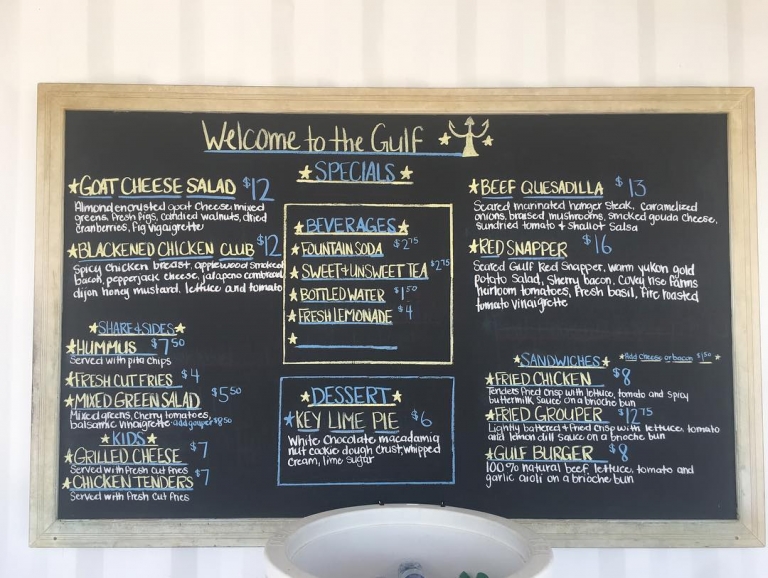 Welcome to the Gulf
SPECIALS
GOAT CHEESE SALAD $12
Almond encrusted goat cheese, mixed
greens, fresh figs, candied walnuts, dried
cranberries, fig vigaigrette
BLACKENED CHICKEN CLUB $12
Spicy chicken breast, applewood smoked
bacon, pepperjack cheese, jalapano cornbread
dijon honey mustard, lettuce and tomato
SHARE & SIDES
HUMMUS $7.50
Served with pita chips
FRESH CUT FRIES $4
MIXED GREEN SALAD $5.50
Mixed greens, Cherry tomatoes,
balsamic vinaigrette - add grouper $8.50
KIDS
GRILLED CHEESE $7
Served with fresh cut fries
CHICKEN TENDERS $7
Served with fresh cut fries
BEVERAGES
FOUNTAIN SODA $2.75
SWEET & UNSWEET TEA $2.75
BOTTLED WATER $1.50
FRESH LEMONADE $4
DESSERT
KEY LIME PIE $6
White Chocolate macadamia
nut cookie dough crust, whipped
cream, lime sugar
BEEF QUESADILLA $13
Seared marinated hanger steak, caramelized
onions, braised mushrooms, smoked gouda cheese,
sundried tomato & shallot salsa
RED SNAPPER $16
Seared Gulf Red Snapper, warm yukon gold
potato salad, sherry bacon, Covey rise farms
heirloom tomatoes, fresh basil, fire roasted
tomato vinaigrette
SANDWICHES
Add cheese or bacon $1.50
FRIED CHICKEN $8
Tenders fried crisp with lettuce, tomato and spicy
buttermilk sauce on a brioche bun
FRIED GROUPER $12.75
Lightly battered & fried crisp with lettuce, tomato
and lemon dill sauce on a brioche bun
GULF BURGER $8
100% natural beef, lettuce, tomato and
garlic aioli on a brioche bun